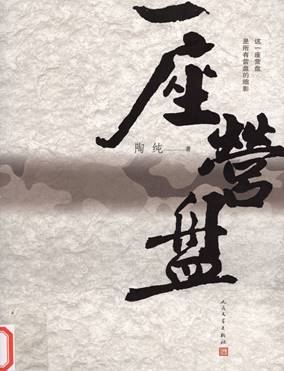 这一座营盘
是所有营盘的缩影
一座營盘
陶纯 著
人民文学出版社